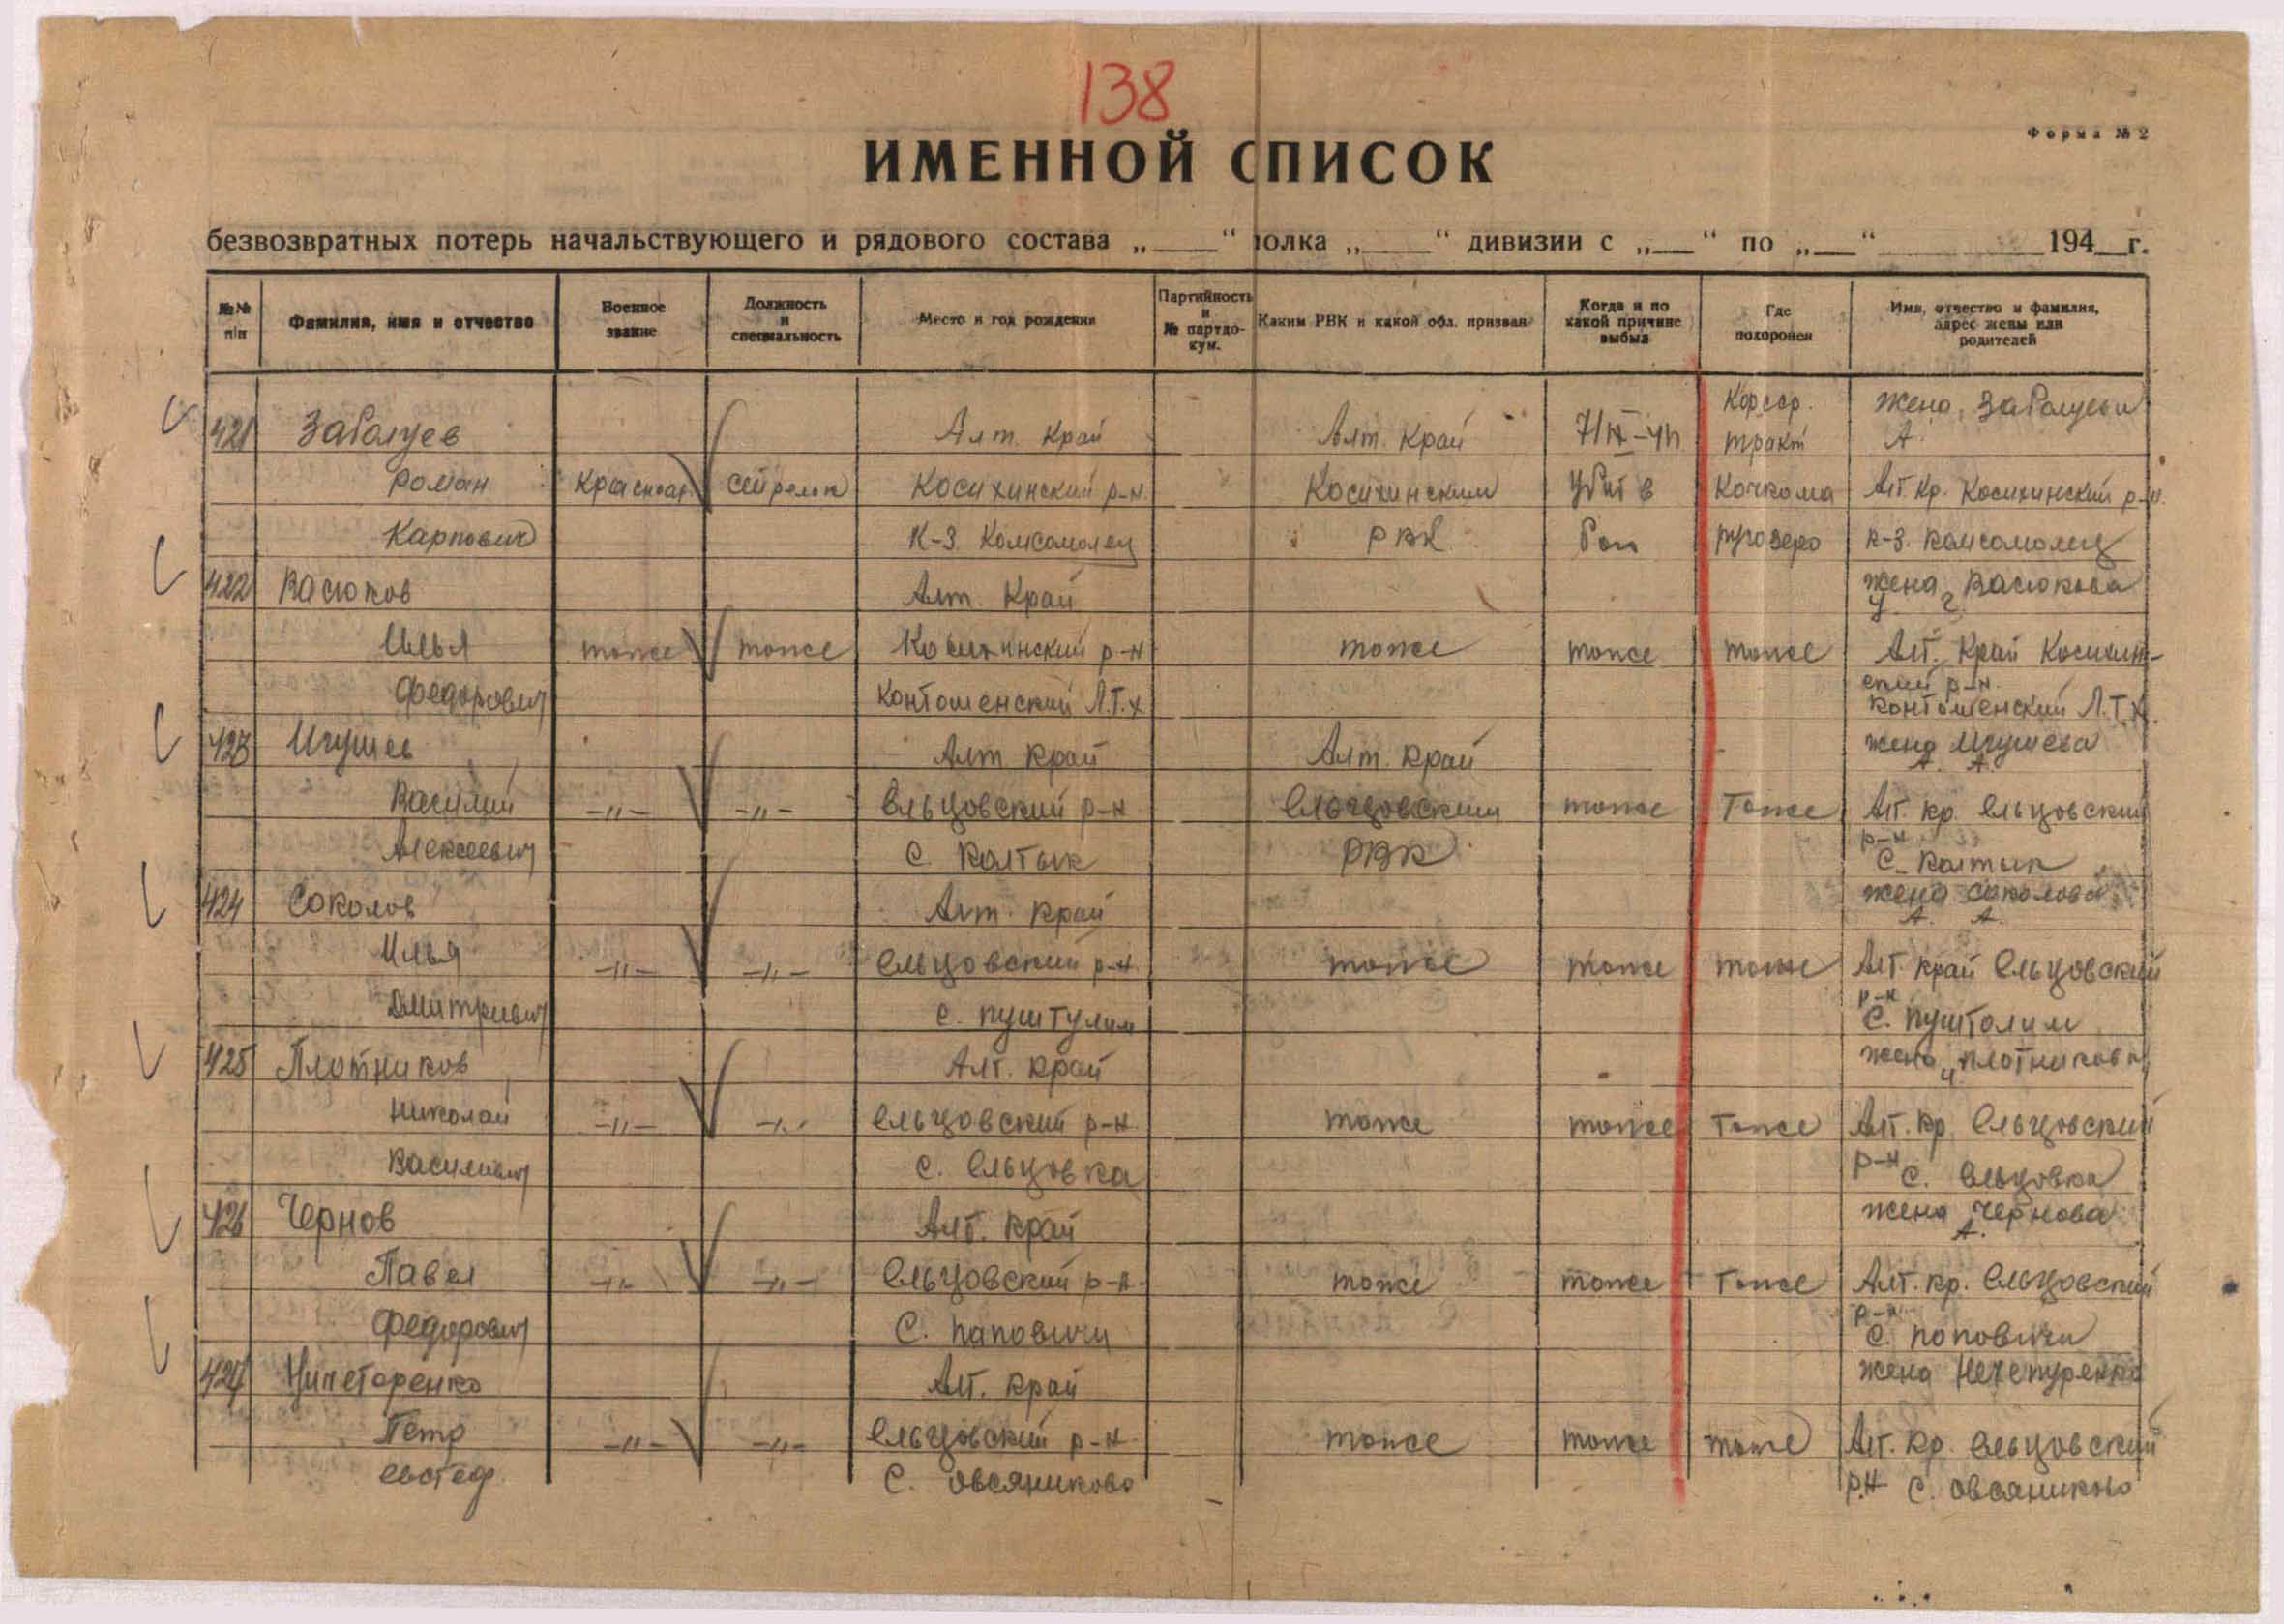 138
Форма № 2
ИМЕННОЙ СПИСОК
безвозвратных потерь начальствующего и рядового состава „___“ полка „___“ дивизии с „__“ по „__“ ______ 194__г.
№№ п/п | Фамилия, имя и отчество | Военное звание | Должность и специальность | Место и год рождения | Партийность и № партдокум. | Каким РВК и какой обл. призван | Когда и по какой причине выбыл | Где похоронен | Имя, отчество и фамилия, адрес жены или родителей
Кор ССР. жена, Заболуева
421 Заболуев Алт. Край Алт. Край тракт А
Роман Красноар Косихинский р-н. Косихинский Убит в Кочкома Алт. Кр. Косихинский р-н.
Карпович К-з Комсомолец РВК бою ругозеро К-з. Комсомолец
422 Васюков Алт. Край жена, Васюкова
Илья тоже тоже Косихинский р-н тоже тоже тоже Алт. Край Косихин-
Федорович Контошенский Л.Т.Х ский р-н.
Контошенский Л.Т.Х.
423 Игушев Алт Край Алт. Край жена Игушева
А. А.
Василий -"- -"- Ельцовский р-н Ельцовский тоже Тоже Алт. Кр. Ельцовский
Алексеевич С. Колтык РВК р-н
С. Колтык
424 Соколов Алт. Край жена Соколова
А. А.
Илья -"- -"- Ельцовский р-н тоже тоже тоже Алт. Край Ельцовский
Дмитриевич с. Пуштулим р-н
С. Пуштолим
425 Плотников Алт. Край жена, Плотникова
Николай -"- -"- Ельцовский р-н тоже тоже Тоже Алт. Кр. Ельцовский
Васильевич С. Ельцовка р-н С. Ельцовка
426 Чернов Алт. Край жена Чернова
А.
Павел -"- -"- Ельцовский р-н тоже тоже Тоже Алт. Кр. Ельцовский
Федорович С. Паповичи р-н
С. Поповичи
427 Алт. Край жена Нечепуренко
Петр -"- -"- Ельцовский р-н тоже тоже тоже Алт. Кр. Ельцовский
Евстеф. С. Овсяниково р.н С. Овсяниково